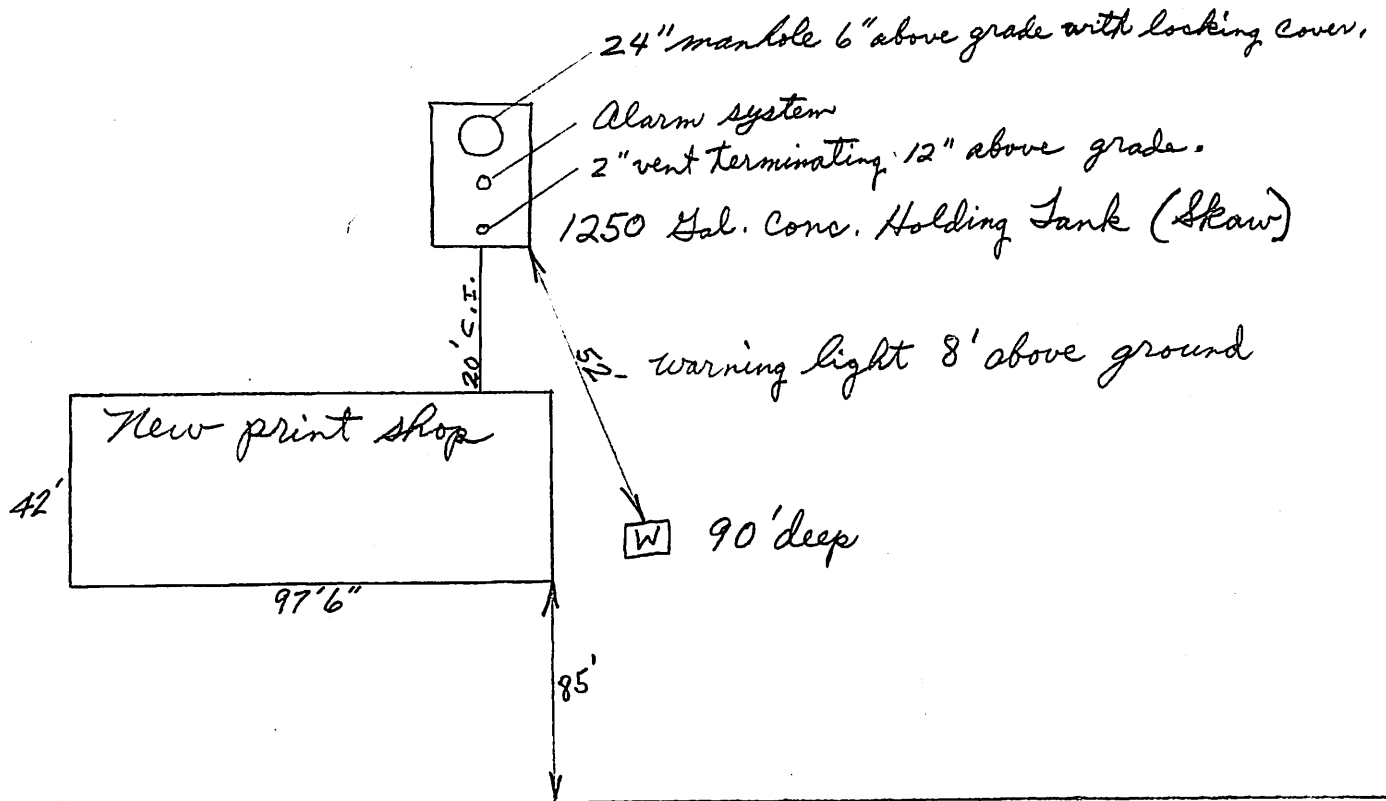 24" manhole 6" above grade with locking cover.
Alarm system
2" vent terminating 12" above grade.
1250 Gal. Conc. Holding Tank (Skaw)
20' C.I.
52
- warning light 8' above ground
New print shop
42'
W 90' deep
97'6"
85'